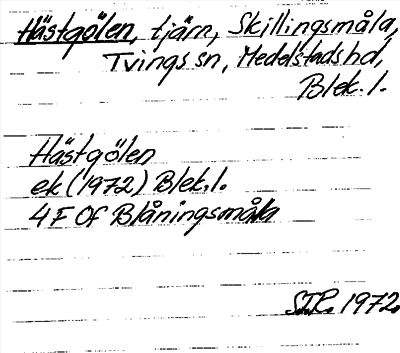 Hästgölen, tjärn, Skillingsmåla,
Tvings sn, Medelstads hd,
Blek. l.
Hästgölen
ek (1972) Blek. l.
4F 0f Blåningsmåla
1972.